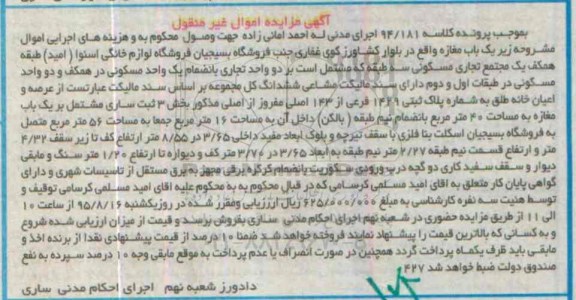 آگهی مزایده اموال غیر منقول
بموجب پرونده کلاسه ۹۴/۱۸۱ اجرای مدنی له احمد امانی زاده جهت وصول محکوم به و هزینه های اجرایی اموال
مشروحه زیر یک باب مغازه واقع در بلوار کشاورز کوی غفاری جنب فروشگاه بسیجیان فروشگاه لوازم خانگی اسنوا ( امید) طبقه
همکف یک مجتمع تجاری مسکونی سه طبقه که مشتمل است بر دو واحد تجاری بانضمام یک واحد مسکونی در همکف و دو واحد
مسکونی در طبقات اول و دوم دارای سند مالکیت مشاعی ششدانگ کل مجموعه بر اساس سند مالکیت عبارتست از عرصه و
اعیان خانه طلق به شماره پلاک ثبتی ۱۴۲۹ فرعی از ۱۴۳ اصلی مفروز از اصلی مذکور بخش ۳ ثبت ساری مشتمل بر یک باب
مغازه به مساحت ۴۰ متر مربع بانضمام نیم طبقه ( بالکن) داخل آن به مساحت ۱۶ متر مربع جمعا به مساحت ۵۶ متر مربع متصل
به فروشگاه بسیجیان اسکلت بنا فلزی با سقف تیرچه و بلوک ابعاد مفید داخلی ۳/۶۵ در ۸/۵۵ متر ارتفاع کف تا زیر سقف ۴/۳۲
متر و ارتفاع قسمت نیم طبقه ۲/۲۷ متر نیم طبقه به ابعاد ۳/۶۵ در ۳/۷۰ متر کف و دیواره تا ارتفاع ۱/۲۰ متر سنگ و مابقی
دیوار و سقف سفید کاری دو گچه درب ورودی سکوریت بانضمام کرکره برقی مجهز به برق مستقل از تاسیسات شهری و دارای
گواهی پایان کار متعلق به اقای امید مسلمی کرسامی که در قبال محکوم به به محکوم علیه اقای امید مسلمی کرسامی توقیف و
توسط هئیت سه نفره کارشناسی به مبلغ ۶۲۵/۰۰۰/۰۰۰ ریال ارزیابی ومقرر شده در روزیکشنبه ۹۵/۸/۱۶ از ساعت ۱۰
الی ۱۱ از طریق مزایده حضوری در شعبه نهم اجرای احکام مدنی ساری بفروش برسد و قیمت از میزان ارزیابی شده شروع
و به کسانی که بالاترین قیمت را پیشنهاد نمایند فروخته خواهد شد ضمنا ۱۰ درصد از قیمت پیشنهادی نقدا از برنده اخذ و
مابقی باید ظرف یکماه پرداخت گردد همچنین در صورت انصراف یا عدم پرداخت به موقع مابقی وجه ۱۰ درصد سپرده به نفع
صندوق دولت ضبط خواهد شد ۴۲۷
دادورز شعبه نهم اجرای احکام مدنی ساری